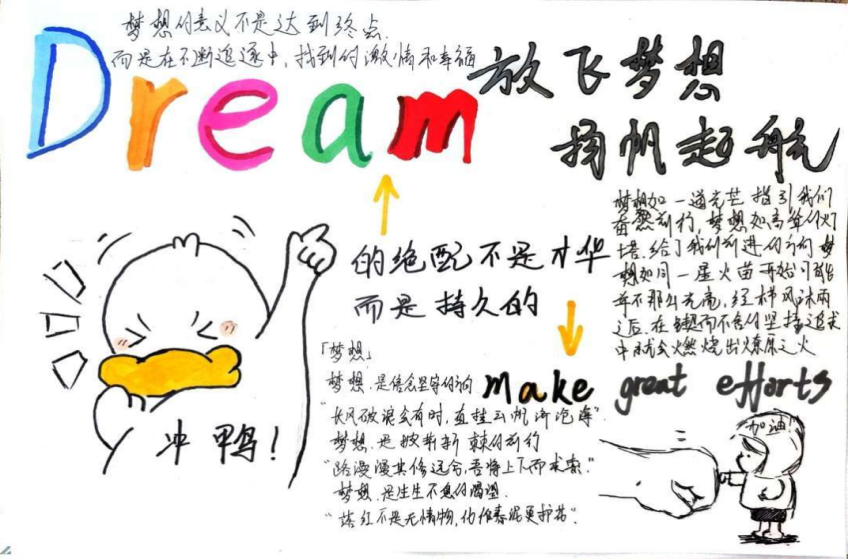 梦想的意义不是达到终点
而是在不断追逐中,找到的激情和幸福
Dream
放飞梦想
扬帆起航
梦想如一道光芒指引我们
奋然前行,梦想如高耸的灯
塔,给了我们前进的方向梦
想如同一星火苗开始可能
并不那么光亮,经栉风沐雨
之后,在锲而不舍的坚持追求
中就会燃烧出燎原之火
的绝配不是才华
而是持久的
make great efforts
「梦想」
梦想.是信念坚守的
"长风破浪会有时,直挂云帆济沧海".
梦想.是披荆斩棘的前行
"路漫漫其修远兮,吾将上下而求索."
梦想.是生生不息的渴望.
"落红不是无情物,化作春泥更护花".
冲鸭!
加油!